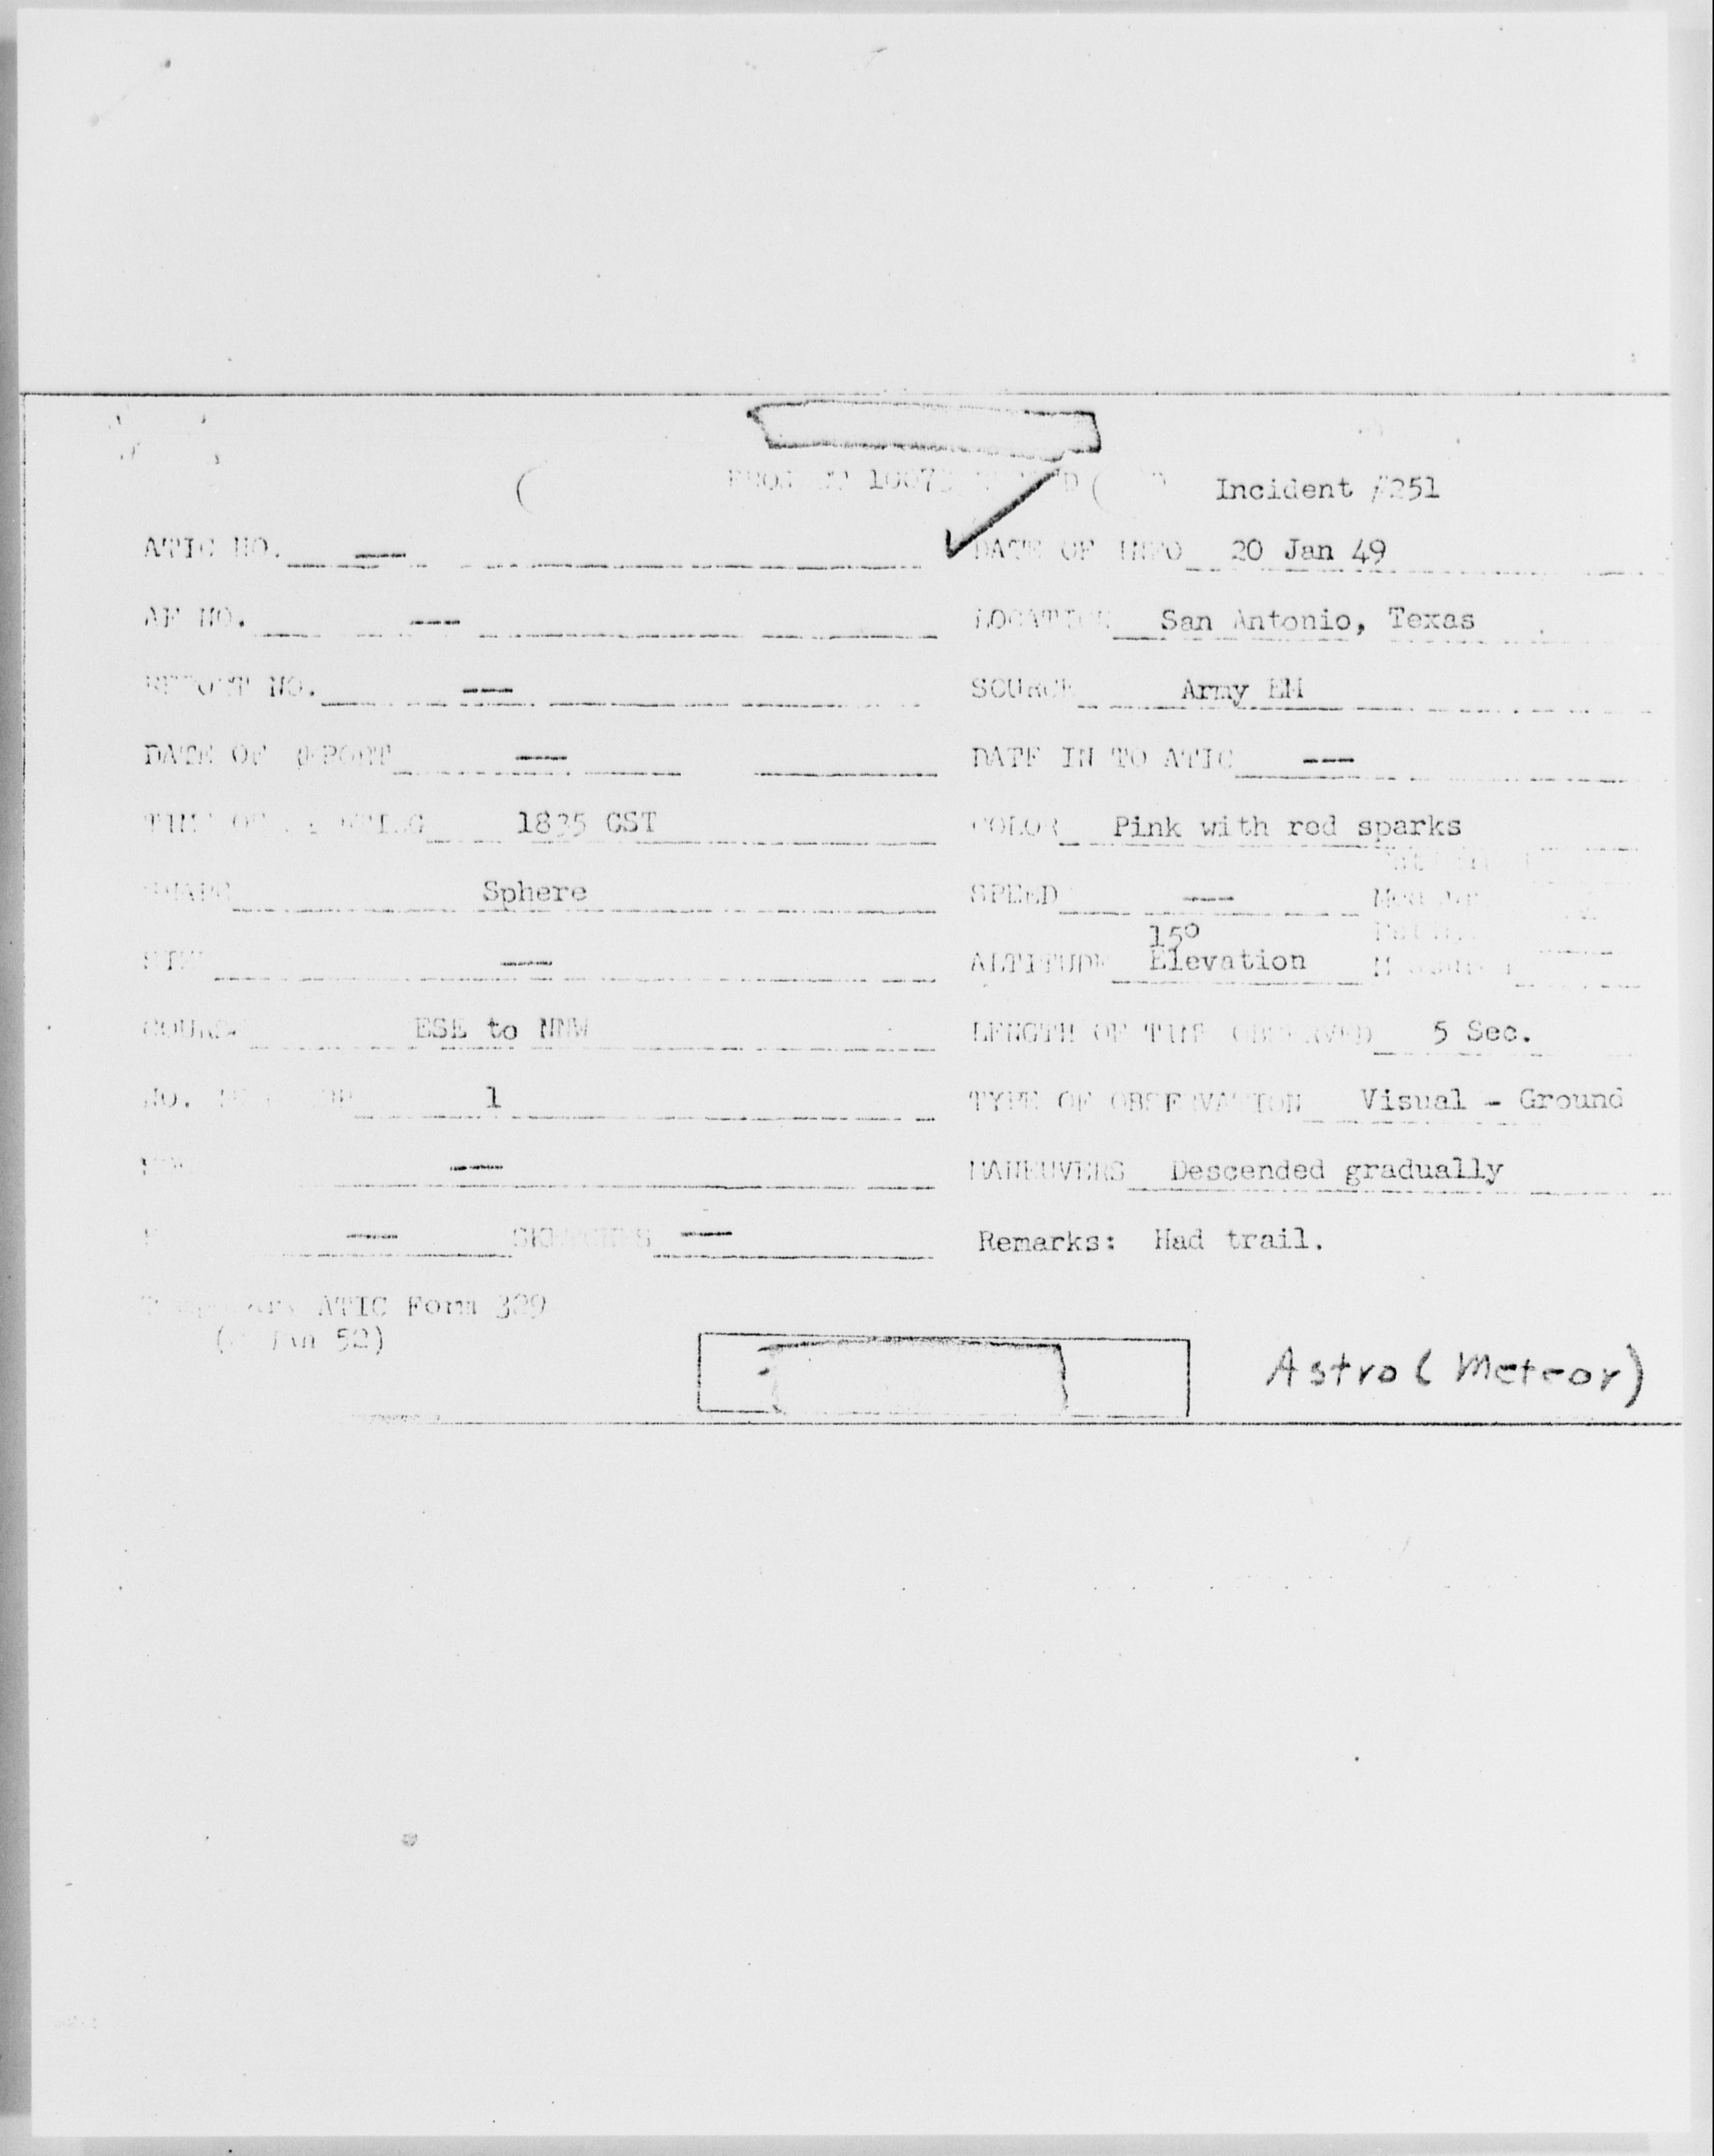 Incident #251
ATIC NO. —
DATE OF INFO 20 Jan 49
AF NO. —
LOCATION San Antonio, Texas
REPORT NO. —
SOURCE Army EM
DATE OF REPORT —
DATE IN TO ATIC —
1835 CST
COLOR Pink with red sparks
Sphere
SPEED —
—
15°
ALTITUDE Elevation
COURSE ESE to NNW
LENGTH OF TIME OBSERVED 5 Sec.
NO. 1
TYPE OF OBSERVATION Visual - Ground
—
MANEUVERS Descended gradually
— SKETCHES —
Remarks: Had trail.
ATIC Form 329
Jan 52)
Astro (Meteor)